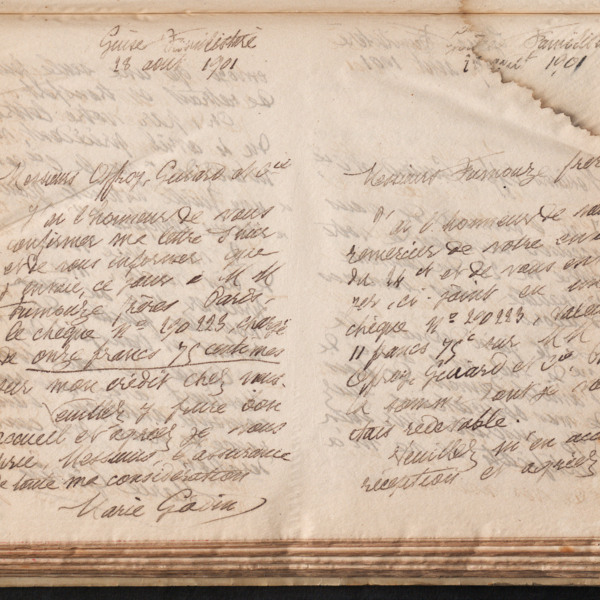 Guise Familistère
23 août 1901
Messieurs Offroy, Guiard et Cie
J'ai l'honneur de vous
confirmer ma lettre d'hier
et de vous informer que
j'envoie, ce jour à MM
Fumouze frères Paris,
le chèque No 290223,
de onze francs 75 centimes
sur mon crédit chez vous.
Veuillez y faire bon
accueil et agréer je vous
prie, Messieurs l'assurance
de toute ma considération
Marie Godin
Familis
août 1901
Messieurs Fumouze frèr
J'ai l'honneur de vo
remercier de votre en
du et de vous en
ci-joint en un
chèque No 290223,
11 francs 75c sur MM
Offroy Guiard et Cie,
la somme dont je vo
étais redevable.
Veuillez m'en acc
réception et agréer